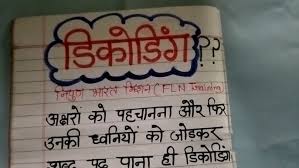 डिकोडिंग??
निपुण भारत मिशन (FLN Training
अक्षरो को पहचानना और फिर
उनकी ध्वनियों को जोडकर
शब्द पढ़ पाना ही डिकोडिंग